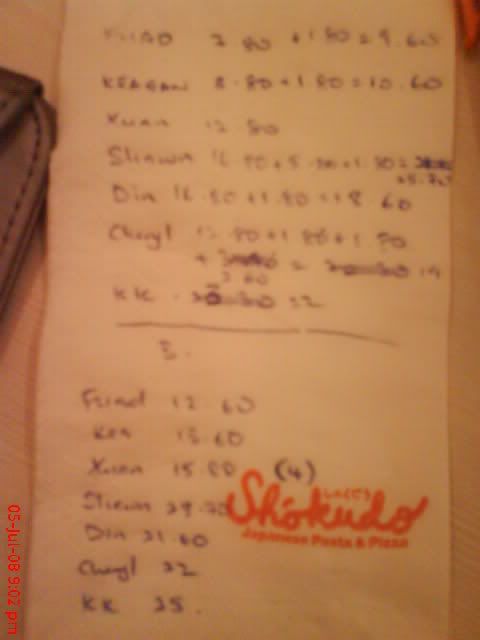 FUAD 7.80 + 1.80 = 9.60
KEAGAN 8.80 + 1.80 = 10.60
Xuan 12.80
Shawn 16.80 + 5.
Din 16.80 + 1.80 = 18.60
Cheryl 12.80 + 1.80 + 1.80
+ 19
KK 22
3.
Fuad 12.60
Kea 13.60
Xuan 15.80 (4)
Shawn 29.70
Din 21.60
Cheryl 22
KK 25.
Shokudo
Japanese Pasta & Pizza
05-Jul-08 9:02 pm